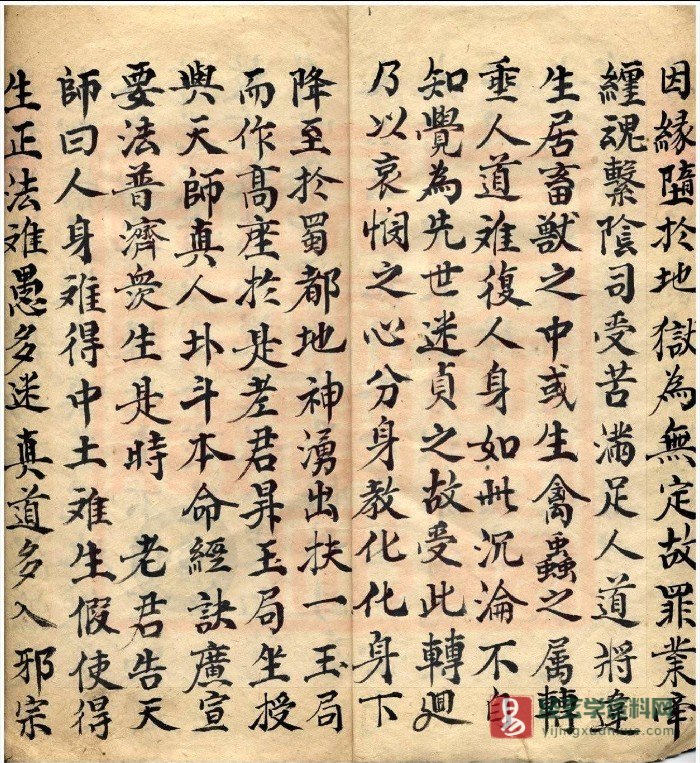 因緣墮於地獄為無定故罪業
纏魂繫陰司受苦滿足人道將違
生居畜獸之中或生禽蟲之属轉
乖人道难復人身如此沉淪不自
知覺為先世迷貞之故受此轉迴
乃以哀憫之心分身教化化身下
降至於蜀都地神湧出扶一玉局
而作高座於是老君昇玉局坐授
與天師真人北斗本命經訣廣宣
要法普濟衆生是時 老君告天
師曰人身难得中土难生假使得
生正法难愚多迷真道多入邪宗
学资料网